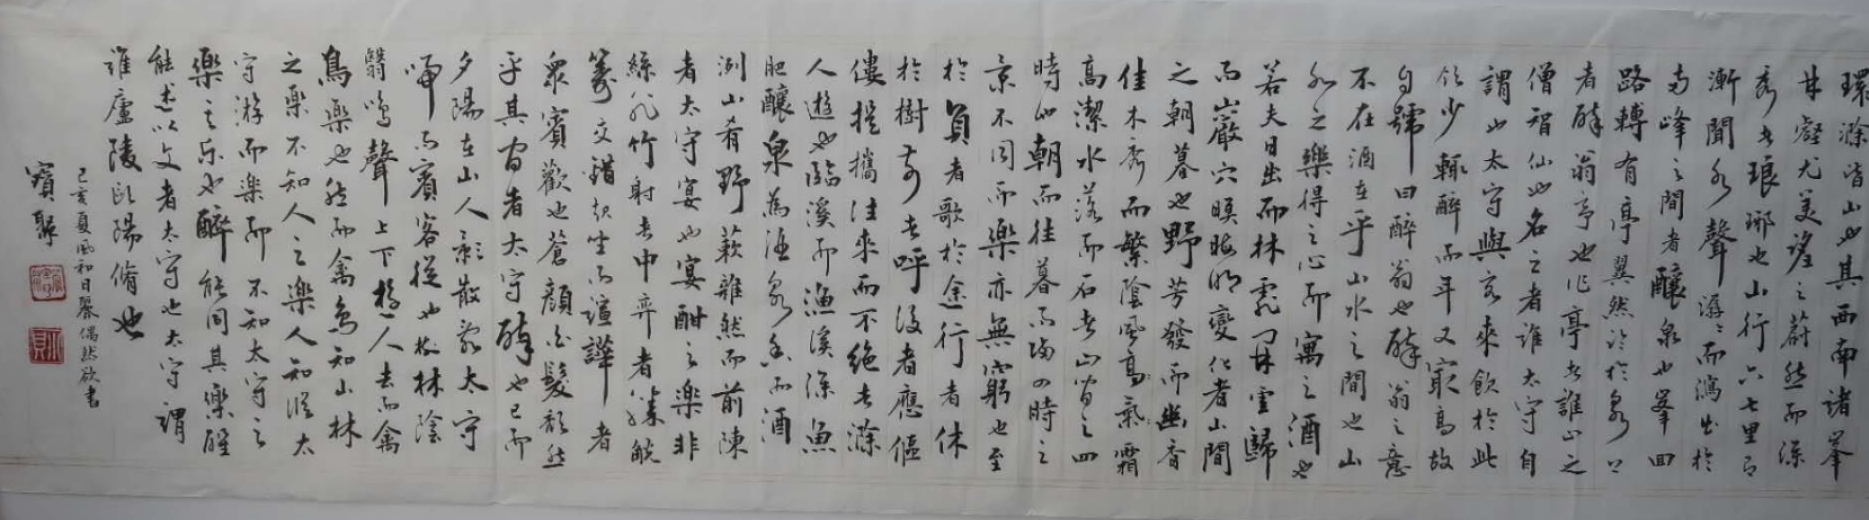 環滁皆山也其西南諸峯
林壑尤美望之蔚然而深
秀者瑯琊也山行六七里而
漸聞水聲潺潺而瀉出於
兩峰之間者釀泉也峯回
路轉有亭翼然臨於泉上
者醉翁亭也作亭者誰山之
僧智仙也名之者誰太守自
謂也太守與客來飲於此
飲少輒醉而年又最高故
自號曰醉翁也醉翁之意
不在酒在乎山水之間也山
水之樂得之心而寓之酒也
若夫日出而林霏開雲歸
而巖穴暝晦明變化者山間
之朝暮也野芳發而幽香
佳木秀而繁陰風高氣霜
高潔水落而石出者山間之四
時也朝而往暮而歸四時之
景不同而樂亦無窮也至
於負者歌於途行者休
於樹前者呼後者應傴
僂提攜往來而不絕者滁
人遊也臨溪而漁溪深魚
肥釀泉為酒泉香而酒
洌山肴野蔌雜然而前陳
者太守宴也宴酣之樂非
絲非竹射者中弈者勝觥
籌交錯起坐而諠譁者
眾賓歡也蒼顏白髮頹然
乎其間者太守醉也已而
夕陽在山人影散亂太守
歸而賓客從也樹林陰
翳鳴聲上下遊人去而禽
鳥樂也然而禽鳥知山林
之樂不知人之樂人知從太
守游而樂而不知太守之
樂其樂也醉能同其樂醒
能述以文者太守也太守謂
誰廬陵歐陽脩也
己亥夏風和日麗偶然欲書
寶聚